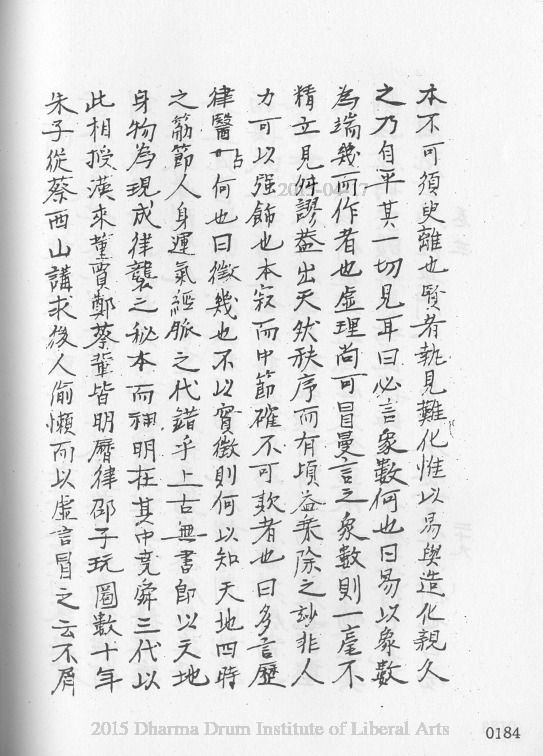 本不可須臾離也賢者執見難化惟以易與造化親久
之乃自平其一切見耳曰必言象數何也曰易以象數
為端幾而作者也虛理尚可冒曼言之象數則一毫不
精立見舛謬蓋出天然秩序而有損益乘除之妙非人
力可以强飾也本寂而中節確不可欺者也曰多言歷
律醫占何也曰徵幾也不以實徵則何以知天地四時
之節人身運氣經脈之代錯乎上古無書即以天地
身物為現成律襲之秘本而神明在其中堯舜三代以
此相授漢來董賈鄭蔡輩皆明曆律邵子玩圖數十年
朱子從蔡西山講求後人偷懶而以虛言冒之云不屑
2015 Dharma Drum Institute of Liberal Arts
0184